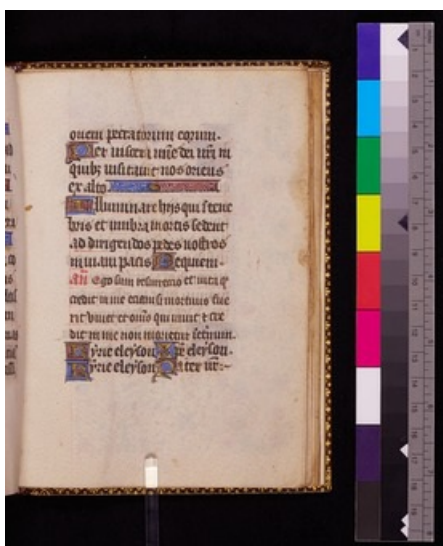 onem peccatorum eorum.
Per viscera mīe dei nr̄i in
quibȝ visitauit nos oriens
ex alto
Illuminare hys qui ī tene
bris et umbra mortis sedent
ad dirigendos pedes nostros
in uiam pacis Requiem.
añ Ego sum resurrectio et uita q̄
credit in me etiam si mortuus fue
rit viuet et om̄is qui uiuit et cre
dit in me non morietur
Kyrie eleyson. Xp̄e eleyson.
Kyrie eleyson. Pater nr̄.